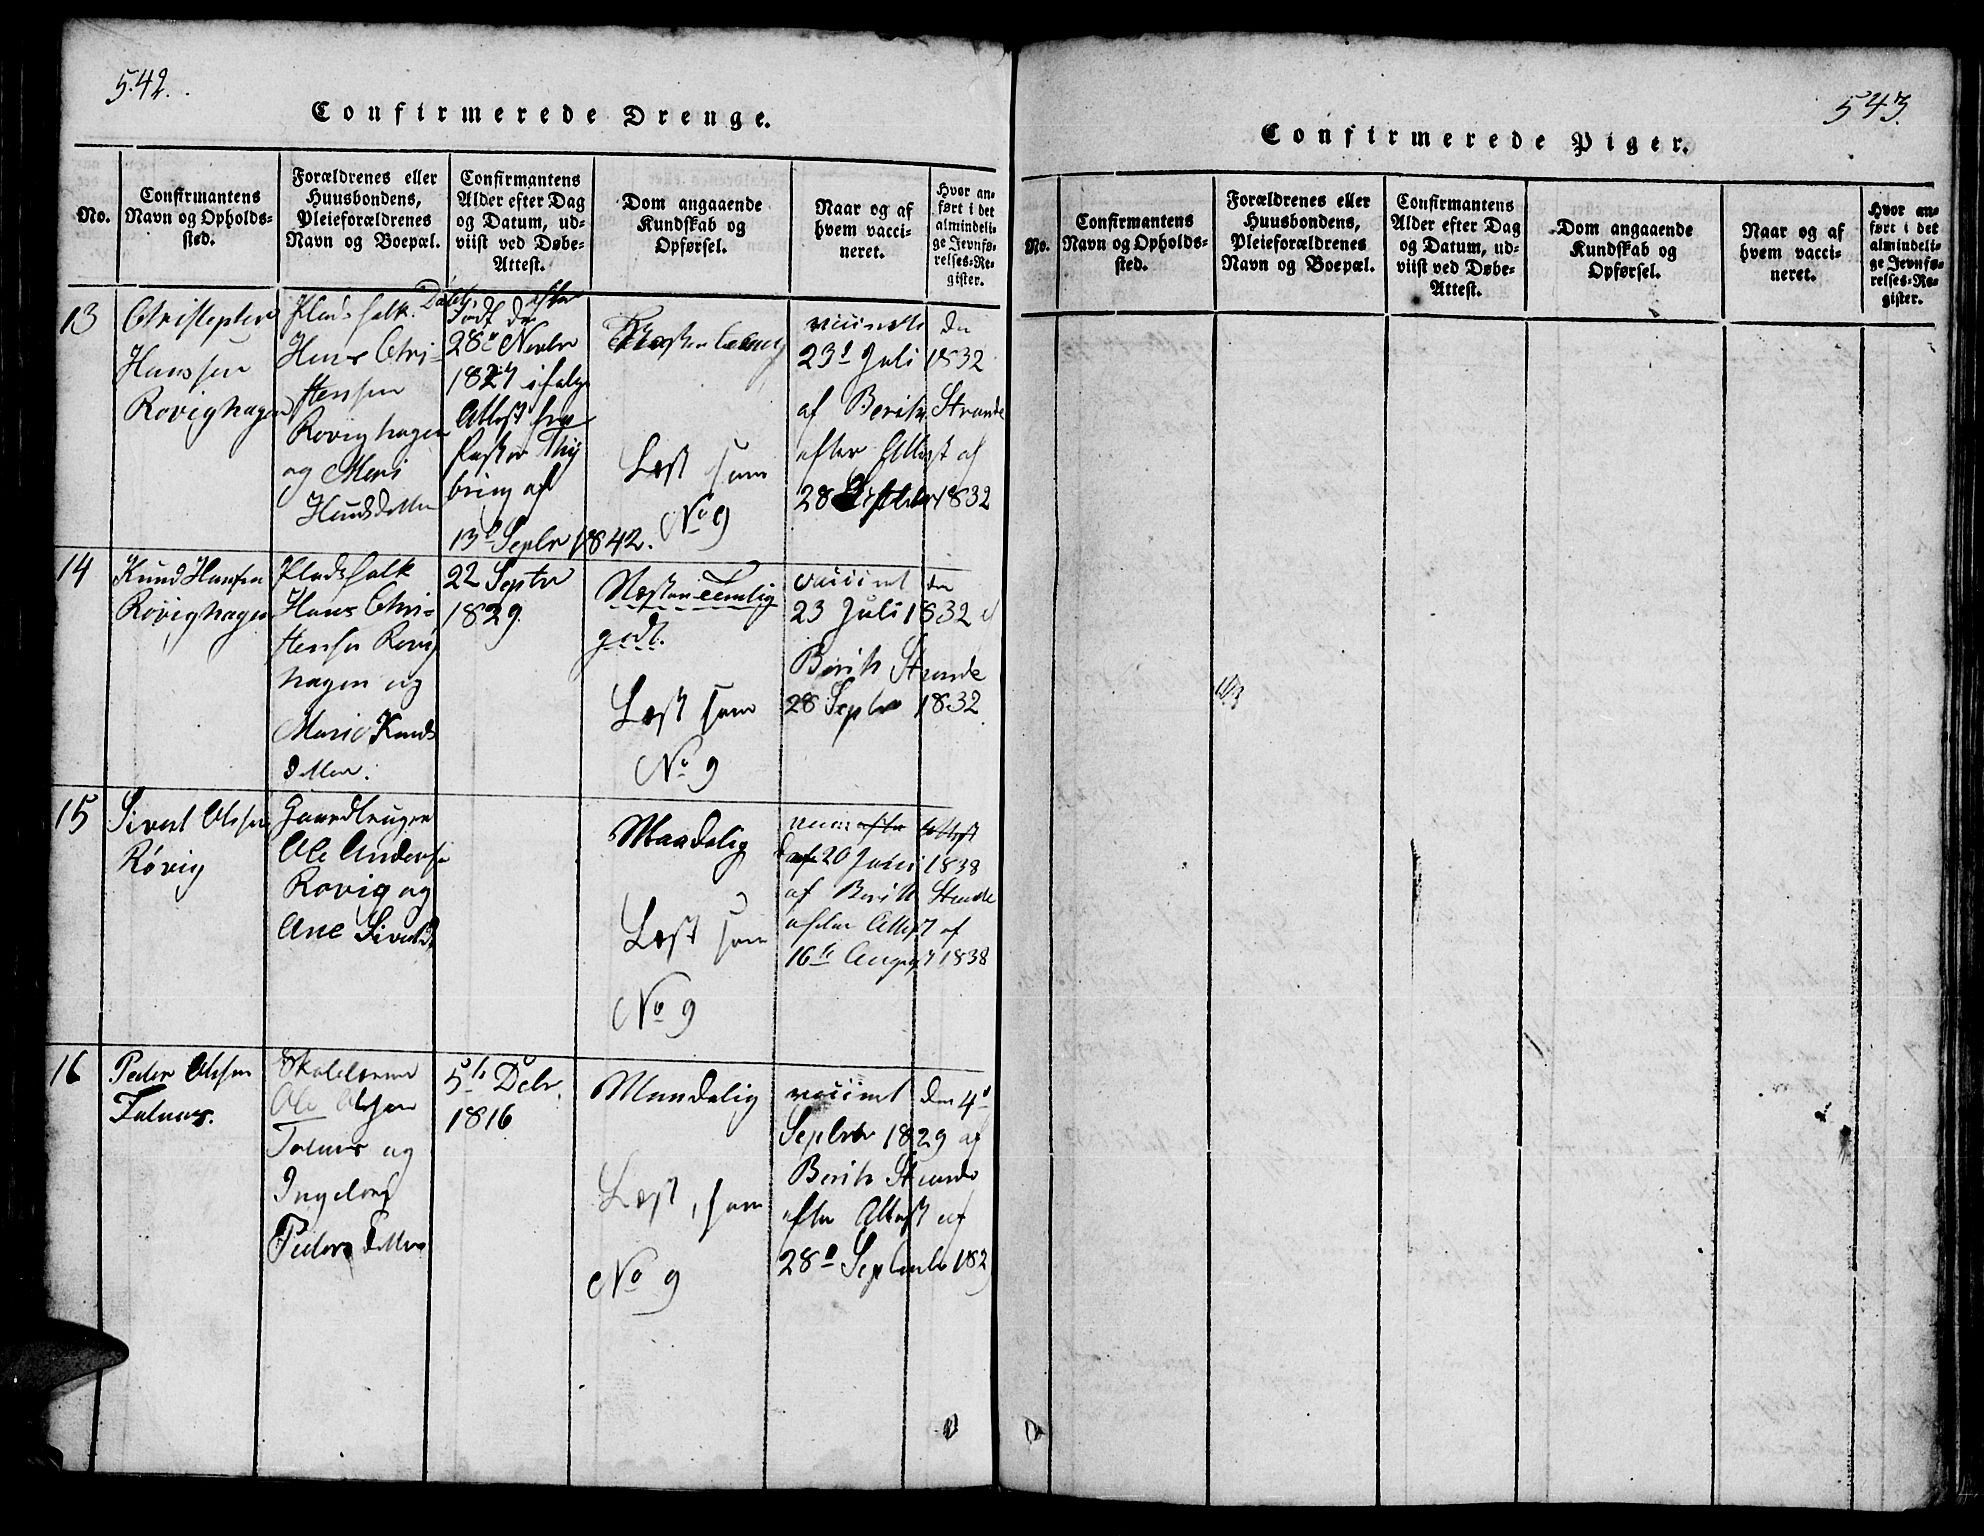 542.
Confirmerede Drenge.
No.
Confirmantens
Navn og Opholds-
sted.
Forældrenes eller
Huusbondens,
Pleieforældrenes
Navn og Boepæl.
Confirmantens
Alder efter Dag
og Datum, ud-
viist ved Døbe-
Attest.
Dom angaaende
Kundskab og
Opførsel.
Naar og af
hvem vacci-
neret.
Hvor an-
ført i det
almindeli-
ge Jevnfø-
relses-Re-
gister.
13
Christopher
Hanssen
Rovighagen
Pladsfolk
Hans Chri-
stensen
Rovighagen
og Mari
Knudsdatter
Født d
28 Novbr
1827 ifølge
Attest fra
Pastor Thy
bring af
13de Septbr 1842.
Læst som
No 9
vaccinet den
23d Juli 1832
af Berith Strande
efter Attest af
28 Septbr 1832
14
Knud Hansen
Røvighagen
Pladsfolk
Hans Chri-
stensen Røvig
hagen og
Mari Knuds
datter.
22 Septbr
1829.
Næsten temlig
godt.
Læst som
No 9
vaccinet den
23 Juli 1832 af
Berith Strande
28 Septbr 1832.
15
Sivert Olsen
Røvig
Gaardbruger
Ole Andersen
Rovig og
Ane Sivertsd
Maadelig
Læst som
No 9
20 Juni 1838
af Berith Strande
efter Attest af
16de August 1838
16
Peder Olsen
Talnæs.
Skolelærer
Ole Olsen
Talnæs og
Ingeborg
Pedersdatter
5te Debr.
1816
Maadelig
Læst, som
No 9
vaccinet den 4d
Septbr 1829 af
Berith Strande
efter Attest af
28d Septembr 182
543.
Confirmerede Piger.
No.
Confirmantens
Navn og Opholds-
sted.
Forældrenes eller
Huusbondens,
Pleieforældrenes
Navn og Boepæl.
Confirmantens
Alder efter Dag
og Datum, ud-
viist ved Døbe-
Attest.
Dom angaaende
Kundskab og
Opførsel.
Naar og af
hvem vacci-
neret.
Hvor an-
ført i det
almindeli-
ge Jevnfø-
relses-Re-
gister.